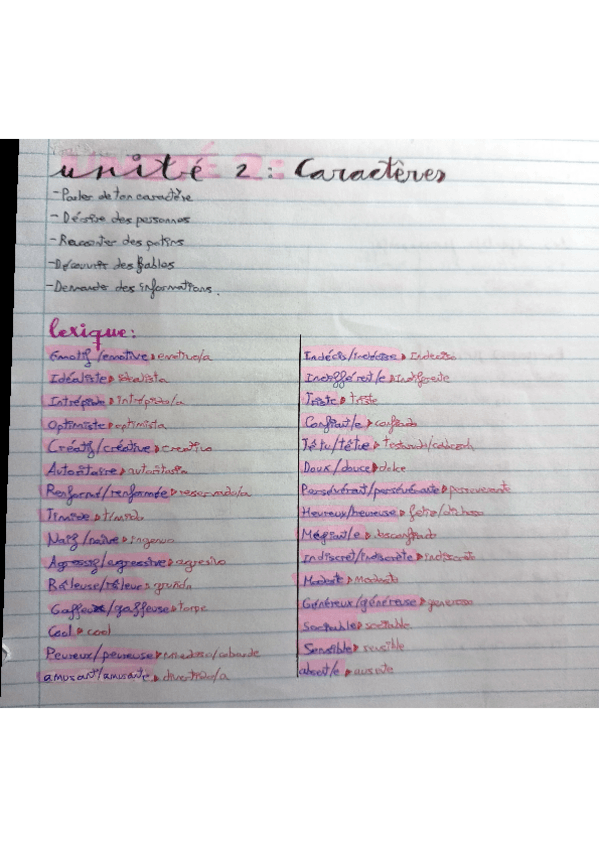 unité 2: Caractères
- Parler de ton caractère
- Décrire des personnes
- Raconter des potins
- Découvrir des fables
- Demander des informations.
lexique:
Emotif/emotive emotivo/a
Idéaliste idealista
Intrépide intrépido/a
Optimiste optimista
Créatif/créative creativo
Autoritaire autoritario
Renfermé/renfermée reservado/a
Timide timido
Naïf/naïve ingenuo
Agressif/agressive agresivo
Râleuse/râleur gruñón
Gaffeux/gaffeuse torpe
Cool cool
Peureux/peureuse miedoso/cobarde
amusant/amusante divertido/a
Indécis/indécise Indeciso
Indifférent/e Indiferente
Triste triste
Confiant/e confiado
Têtu/têtue testarudo/cabezota
Doux/douce dulce
Persévérant/persévérante perseverante
Heureux/heureuse feliz/dichoso
Méfiant/e desconfiado
Indiscret/indiscrète indiscreto
Modeste Modesto
Généreux/généreuse generoso
Sociable sociable
Sensible sensible
absent/e ausente